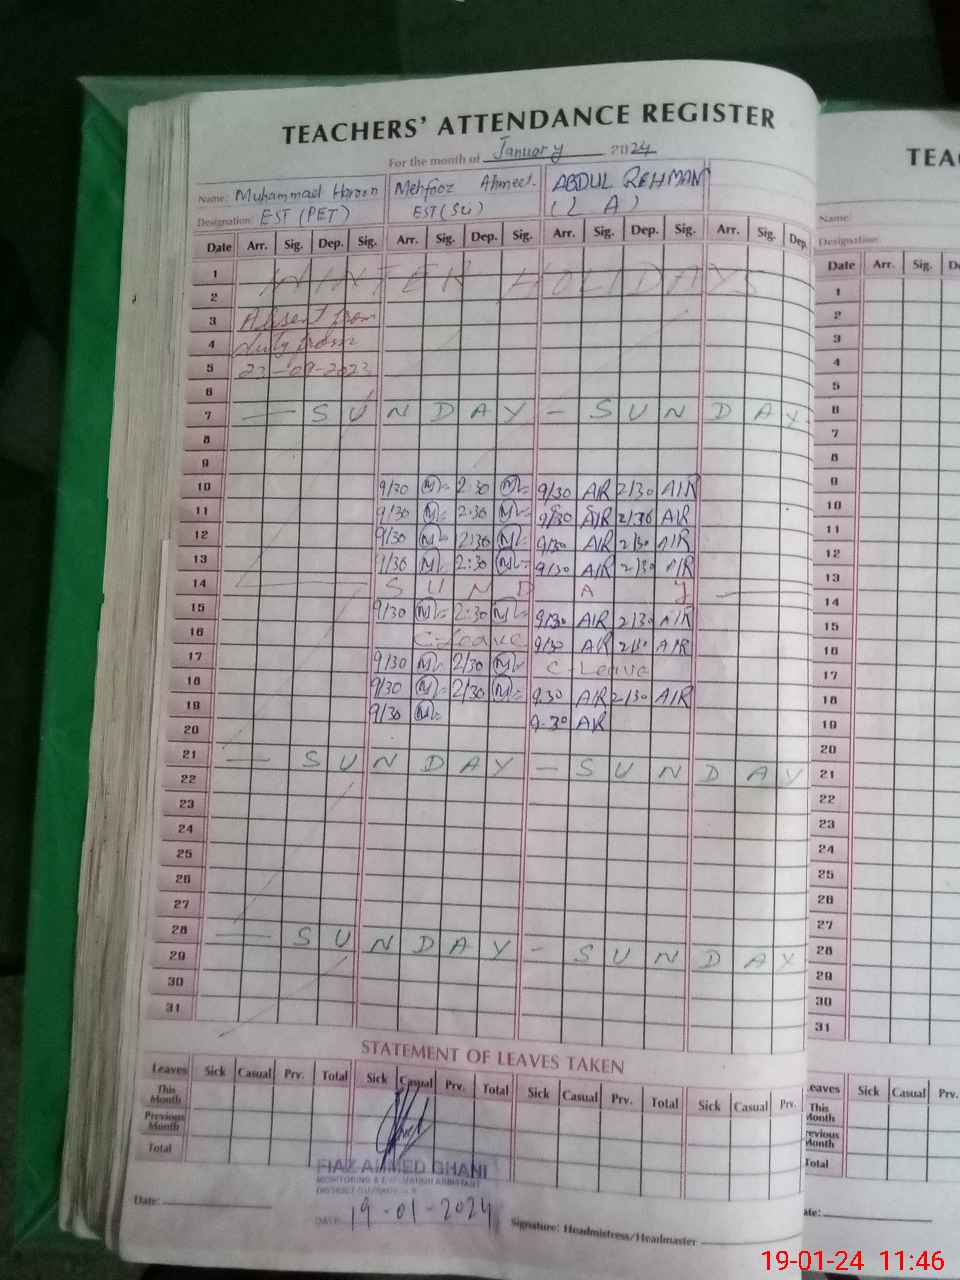 TEACHERS' ATTENDANCE REGISTER
For the month of January 2024
Name: Muhammad Haroon Mehfooz Ahmed. ABDUL REHMAN
Designation: EST (PET) EST (Sci) (L A)
Date Arr. Sig. Dep. Sig. Arr. Sig. Dep. Sig. Arr. Sig. Dep. Sig. Arr. Sig. Dep.
1 WINTER HOLIDAYS
2
3 Absent from
4 duty from
5 23-09-2023
6
7 — SUNDAY — SUNDAY
8
9
10 9/30 M 2:30 M 9/30 AIR 2/30 AIR
11 9/30 M 2:30 M 9/30 AIR 2/30 AIR
12 9/30 M 2:30 M 9/30 AIR 2/30 AIR
13 9/30 M 2:30 M 9/30 AIR 2/30 AIR
14 — SUNDAY —
15 9/30 M 2:30 M 9/30 AIR 2/30 AIR
16 C-Leave 9/30 AIR 2/30 AIR
17 9/30 M 2/30 M C-Leave
18 9/30 M 2/30 M 9.30 AIR 2/30 AIR
19 9/30 M 9.30 AIR
20
21 — SUNDAY — SUNDAY
22
23
24
25
26
27
28 — SUNDAY — SUNDAY
29
30
31
STATEMENT OF LEAVES TAKEN
Leaves Sick Casual Prv. Total Sick Casual Prv. Total Sick Casual Prv. Total Sick Casual Prv.
This Month
Previous Month
Total
FIAZ AHMED GHANI
MONITORING & EVALUATION ASSISTANT
DISTRICT
DATE: 19-01-2024
Date:
Signature: Headmistress/Headmaster
TEA
Name:
Designation:
Date Arr. Sig. De
1
2
3
4
5
6
7
8
9
10
11
12
13
14
15
16
17
18
19
20
21
22
23
24
25
26
27
28
29
30
31
eaves Sick Casual Prv.
This Month
revious Month
Total
ate:
19-01-24 11:46